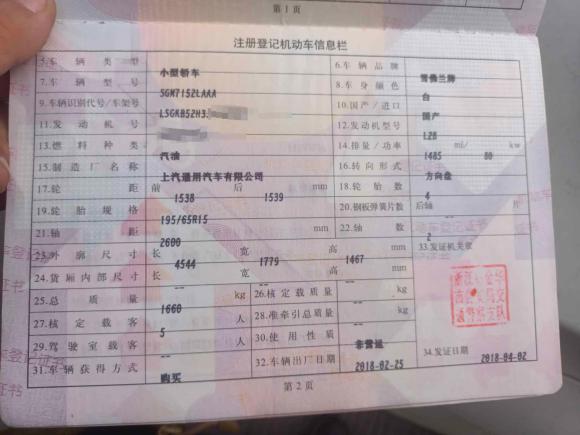 第 1 页
注册登记机动车信息栏
5.车辆类型 小型轿车 6.车辆品牌 雪佛兰牌
7.车辆型号 SGK7152LAAA 8.车身颜色
9.车辆识别代号/车架号 LSGKB52H3 10.国产/进口 国产
11.发动机号 12.发动机型号 L2B
13.燃料种类 汽油 14.排量/功率 1485 ml/ 80 kw
15.制造厂名称 上汽通用汽车有限公司 16.转向形式 方向盘
17.轮距 前 1538 后 1539 mm 18.轮胎数 4
19.轮胎规格 195/65R15 20.钢板弹簧片数 后轴 -- 片
21.轴距 2600 mm 22.轴数 2
23.外廓尺寸 长 4544 宽 1779 高 1467 mm 33.发证机关章
24.货厢内部尺寸 长 -- 宽 -- 高 -- mm
25.总质量 1660 kg 26.核定载质量 -- kg
27.核定载客 5 人 28.准牵引总质量 -- kg
29.驾驶室载客 -- 人 30.使用性质 非营运
31.车辆获得方式 购买 32.车辆出厂日期 2018-02-25 34.发证日期 2018-04-02
第 2 页